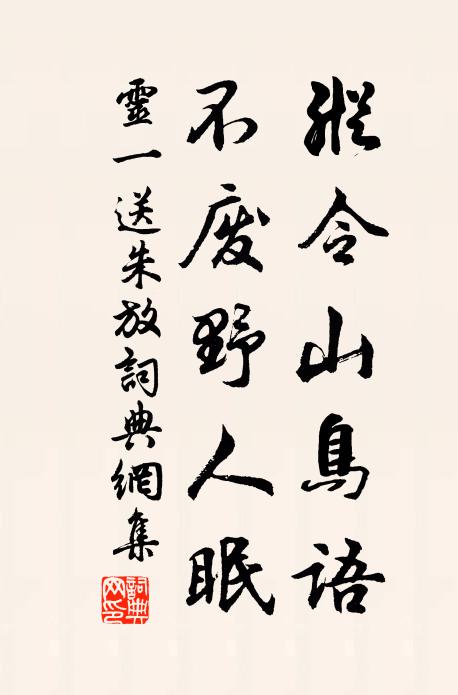 縱令山鳥語
不廢野人眠
靈一送朱放詞典網集
詞典網印